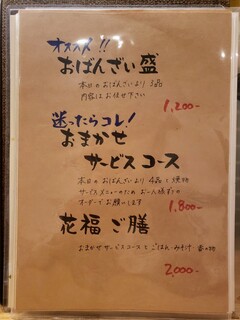 オススメ!!
おばんざい盛
本日のおばんざいより 3品
内容はお任せ下さい
1,200-
迷ったらコレ!
おまかせ
サービスコース
本日のおばんざいより 4品と焼物
サービスメニューのため お一人様ずつの
オーダーでお願いします
1,800-
花福ご膳
おまかせサービスコースと ごはん・みそ汁 香の物
2,000-